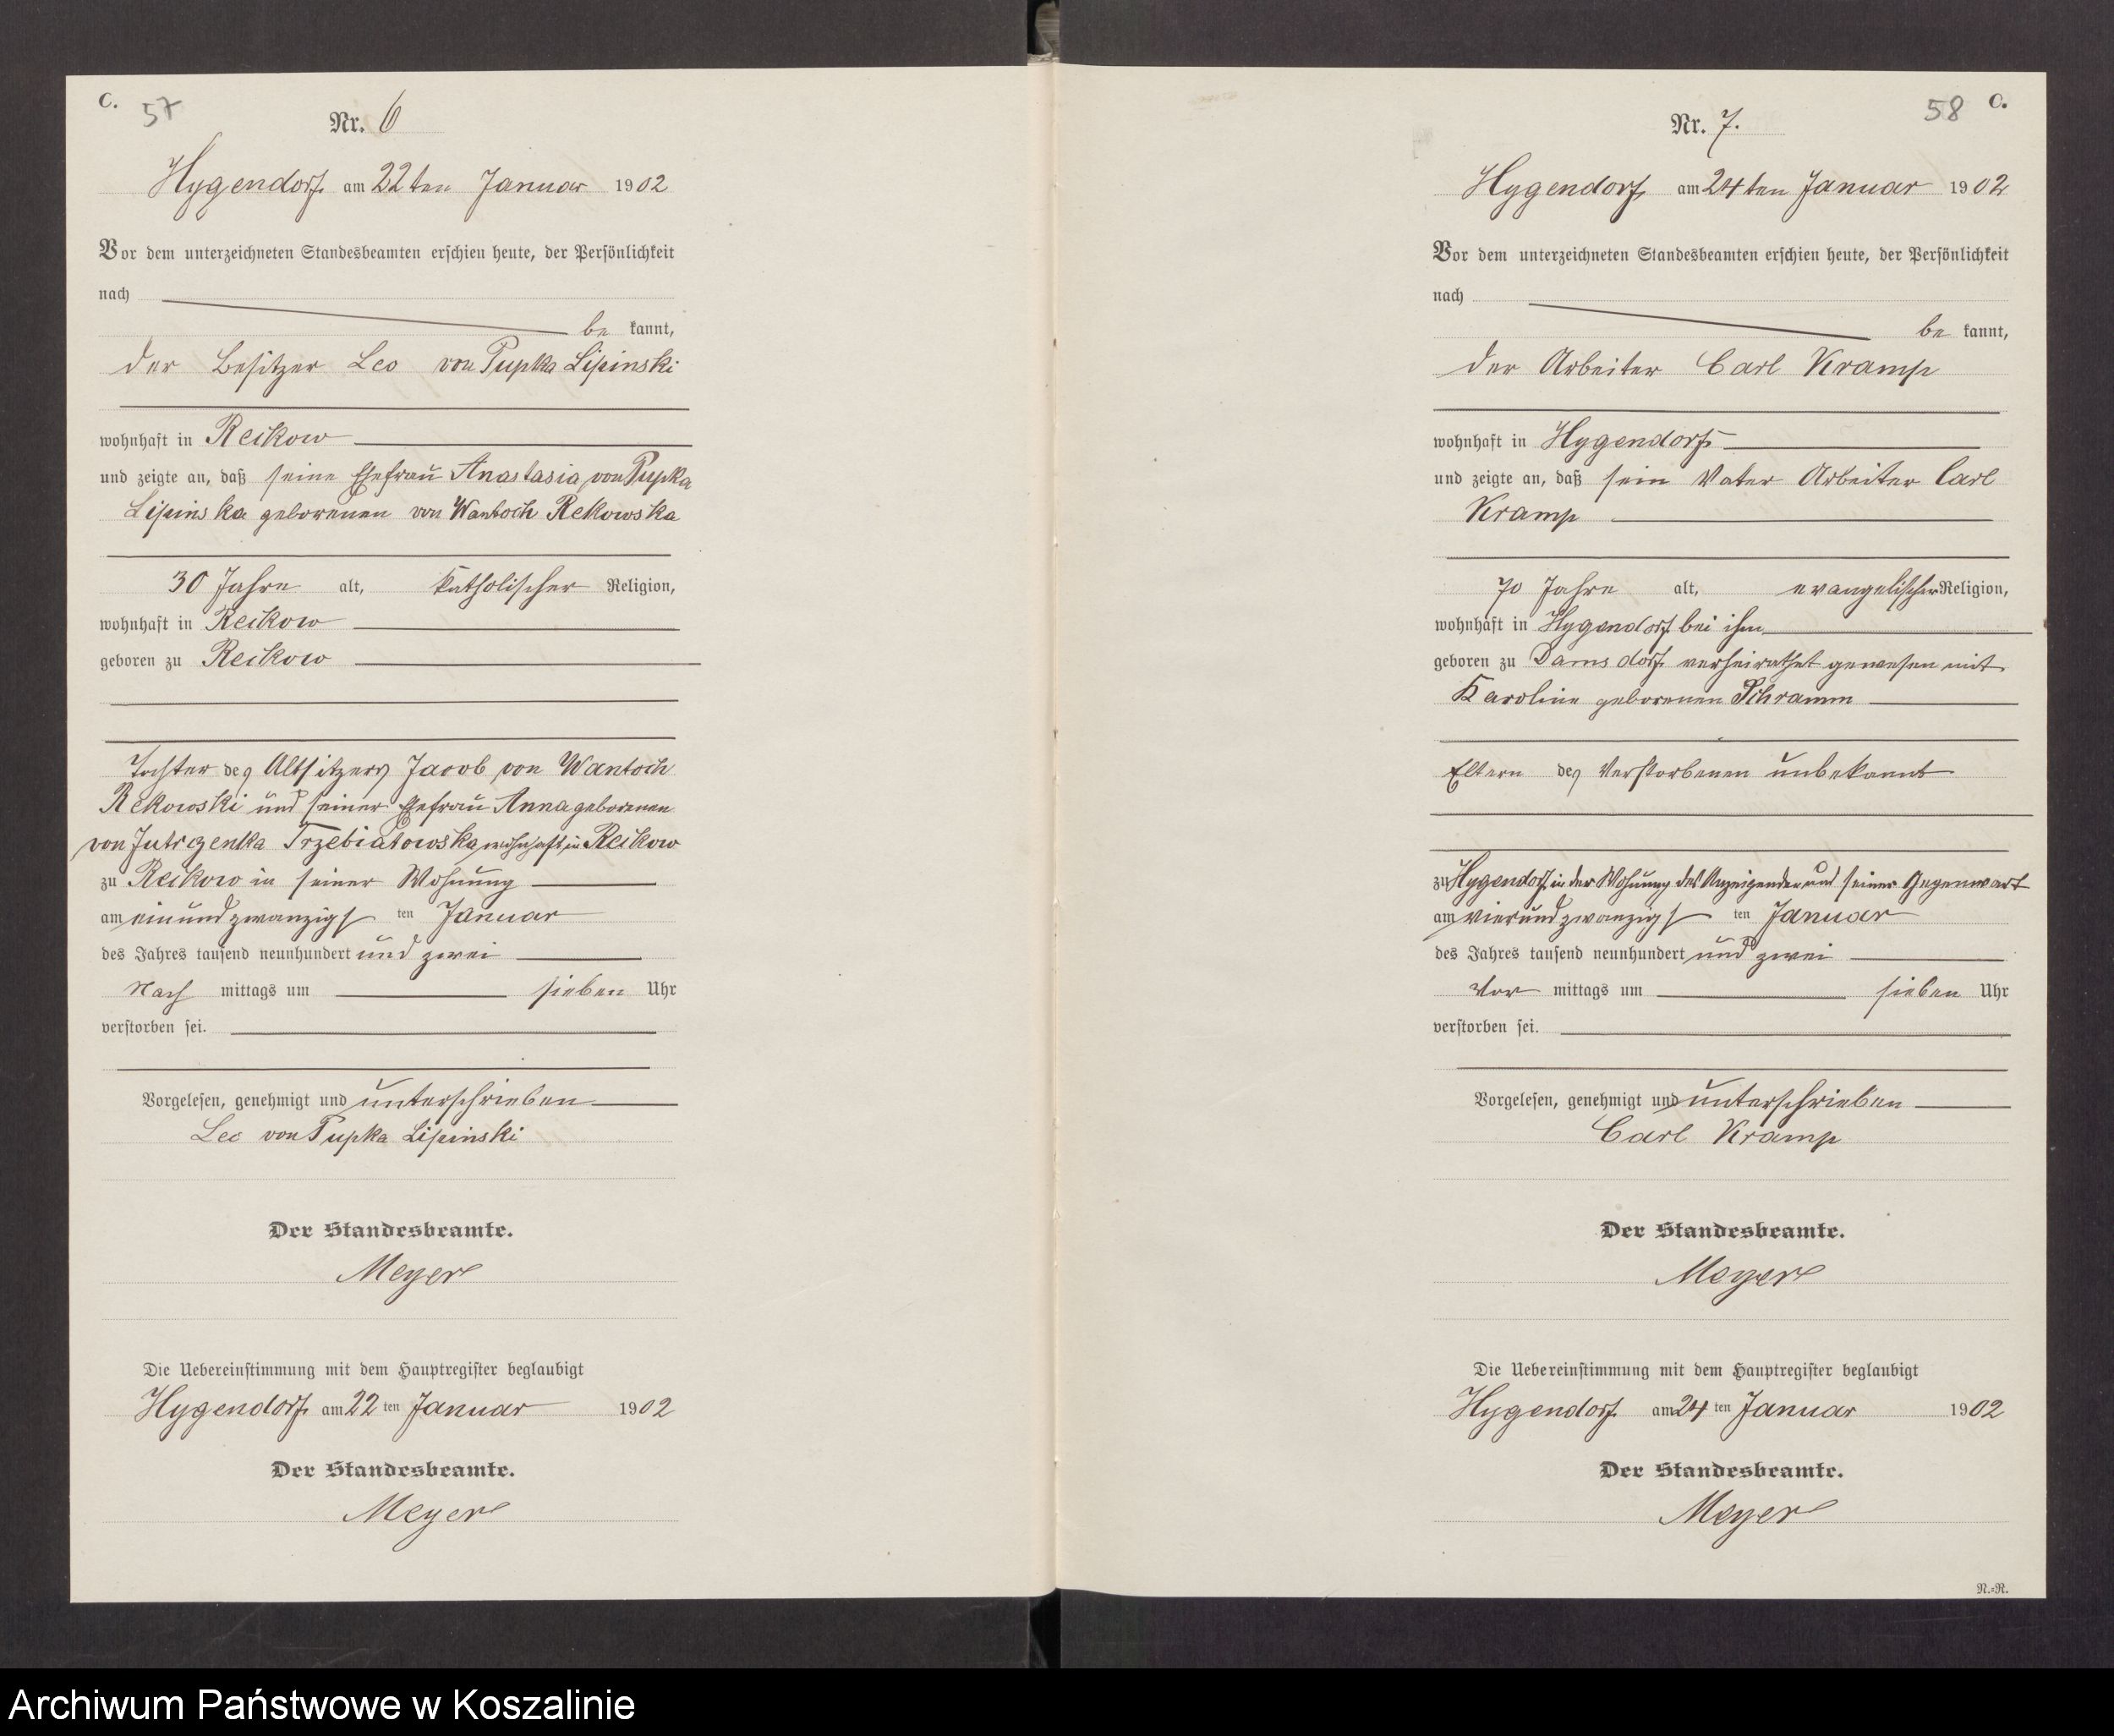 C.
57
Nr. 6
Hygendorf am 22ten Januar 1902
Vor dem unterzeichneten Standesbeamten erschien heute, der Persönlichkeit
nach
be kannt,
der Besitzer Leo von Pupka Lipinski
wohnhaft in Reikow
und zeigte an, daß seine Ehefrau Anastasia von Pupka
Lipinska geborenen von Wantoch Rekowska
30 Jahre alt, katholischer Religion,
wohnhaft in Reikow
geboren zu Reikow
Tochter des Altsitzers Jacob von Wantoch
Rekowski und seiner Ehefrau Anna geborenen
von Jutrzenka Trzebiatowska wohnhaft in Reikow
zu Reikow in seiner Wohnung
am einundzwanzigs ten Januar
des Jahres tausend neunhundert und zwei
Nach mittags um sieben Uhr
verstorben sei.
Vorgelesen, genehmigt und unterschrieben
Leo von Pupka Lipinski
Der Standesbeamte.
Meyer
Die Uebereinstimmung mit dem Hauptregister beglaubigt
Hygendorf am 22 ten Januar 1902
Der Standesbeamte.
Meyer
58
C.
Nr. 7.
Hygendorf am 24ten Januar 1902
Vor dem unterzeichneten Standesbeamten erschien heute, der Persönlichkeit
nach
be kannt,
der Arbeiter Carl Kramp
wohnhaft in Hygendorf
und zeigte an, daß sein Vater Arbeiter Carl
Kramp
70 Jahre alt, evangelischer Religion,
wohnhaft in Hygendorf bei ihm
geboren zu Damsdorf verheirathet gewesen mit
Karoline geborenen Schramm
Eltern des Verstorbenen unbekannt
zu Hygendorf in der Wohnung des Anzeigenden und seiner Gegenwart
am vierundzwanzigs ten Januar
des Jahres tausend neunhundert und zwei
Vor mittags um sieben Uhr
verstorben sei.
Vorgelesen, genehmigt und unterschrieben
Carl Kramp
Der Standesbeamte.
Meyer
Die Uebereinstimmung mit dem Hauptregister beglaubigt
Hygendorf am 24 ten Januar 1902
Der Standesbeamte.
Meyer
N.=R.
Archiwum Państwowe w Koszalinie